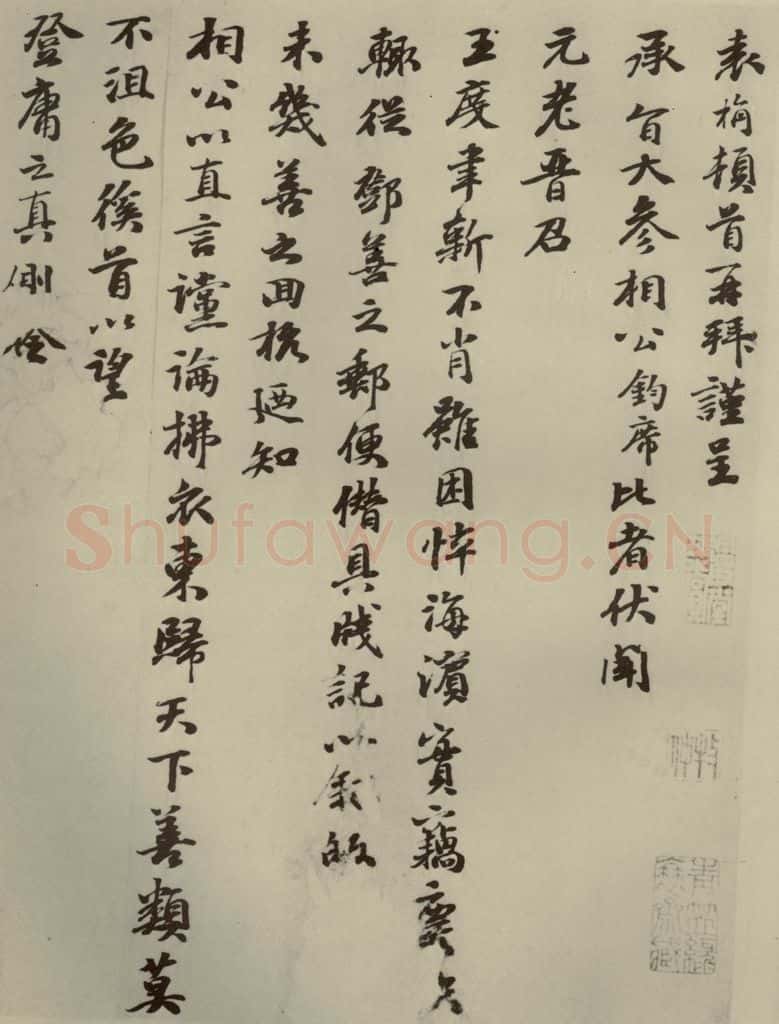 袁桷頓首再拜謹呈
承旨大參相公鈞席比者伏聞
元老晉召
玉度聿新不肖雖困悴海濱實竊慶忭
輒從鄧善之郵便僭具牋記以敘
未幾善之回杭廼知
相公以直言讜論拂衣東歸天下善類莫
不沮色徯首以望
登庸之真側
Shufawang.CN